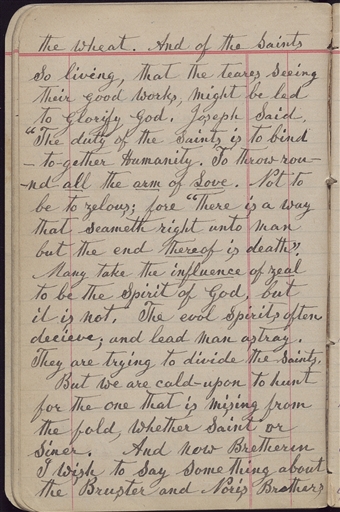 the wheat. And of the Saints
So living, that the teares seeing
their good works, might be led
to Glorify God. Joseph Said.
"The duty of the saints is to bind
-to-gether Humanity. So throw rou-
-nd all the arm of Love. Not to
be to zelous; fore "There is a way
that seameth right unto man
but the end thereof is death".
Many take the influence of zeal
to be the Spirit of God, but
it is not." The evol Spirits often
decieve, and lead man astray.
They are trying to divide the Saints.
But we are cald-upon to hunt
for the one that is mising from
the fold, whether Saint or
Siner. And now Bretherin
I wish to say Some thing about
the Bruster and Noris Brothers